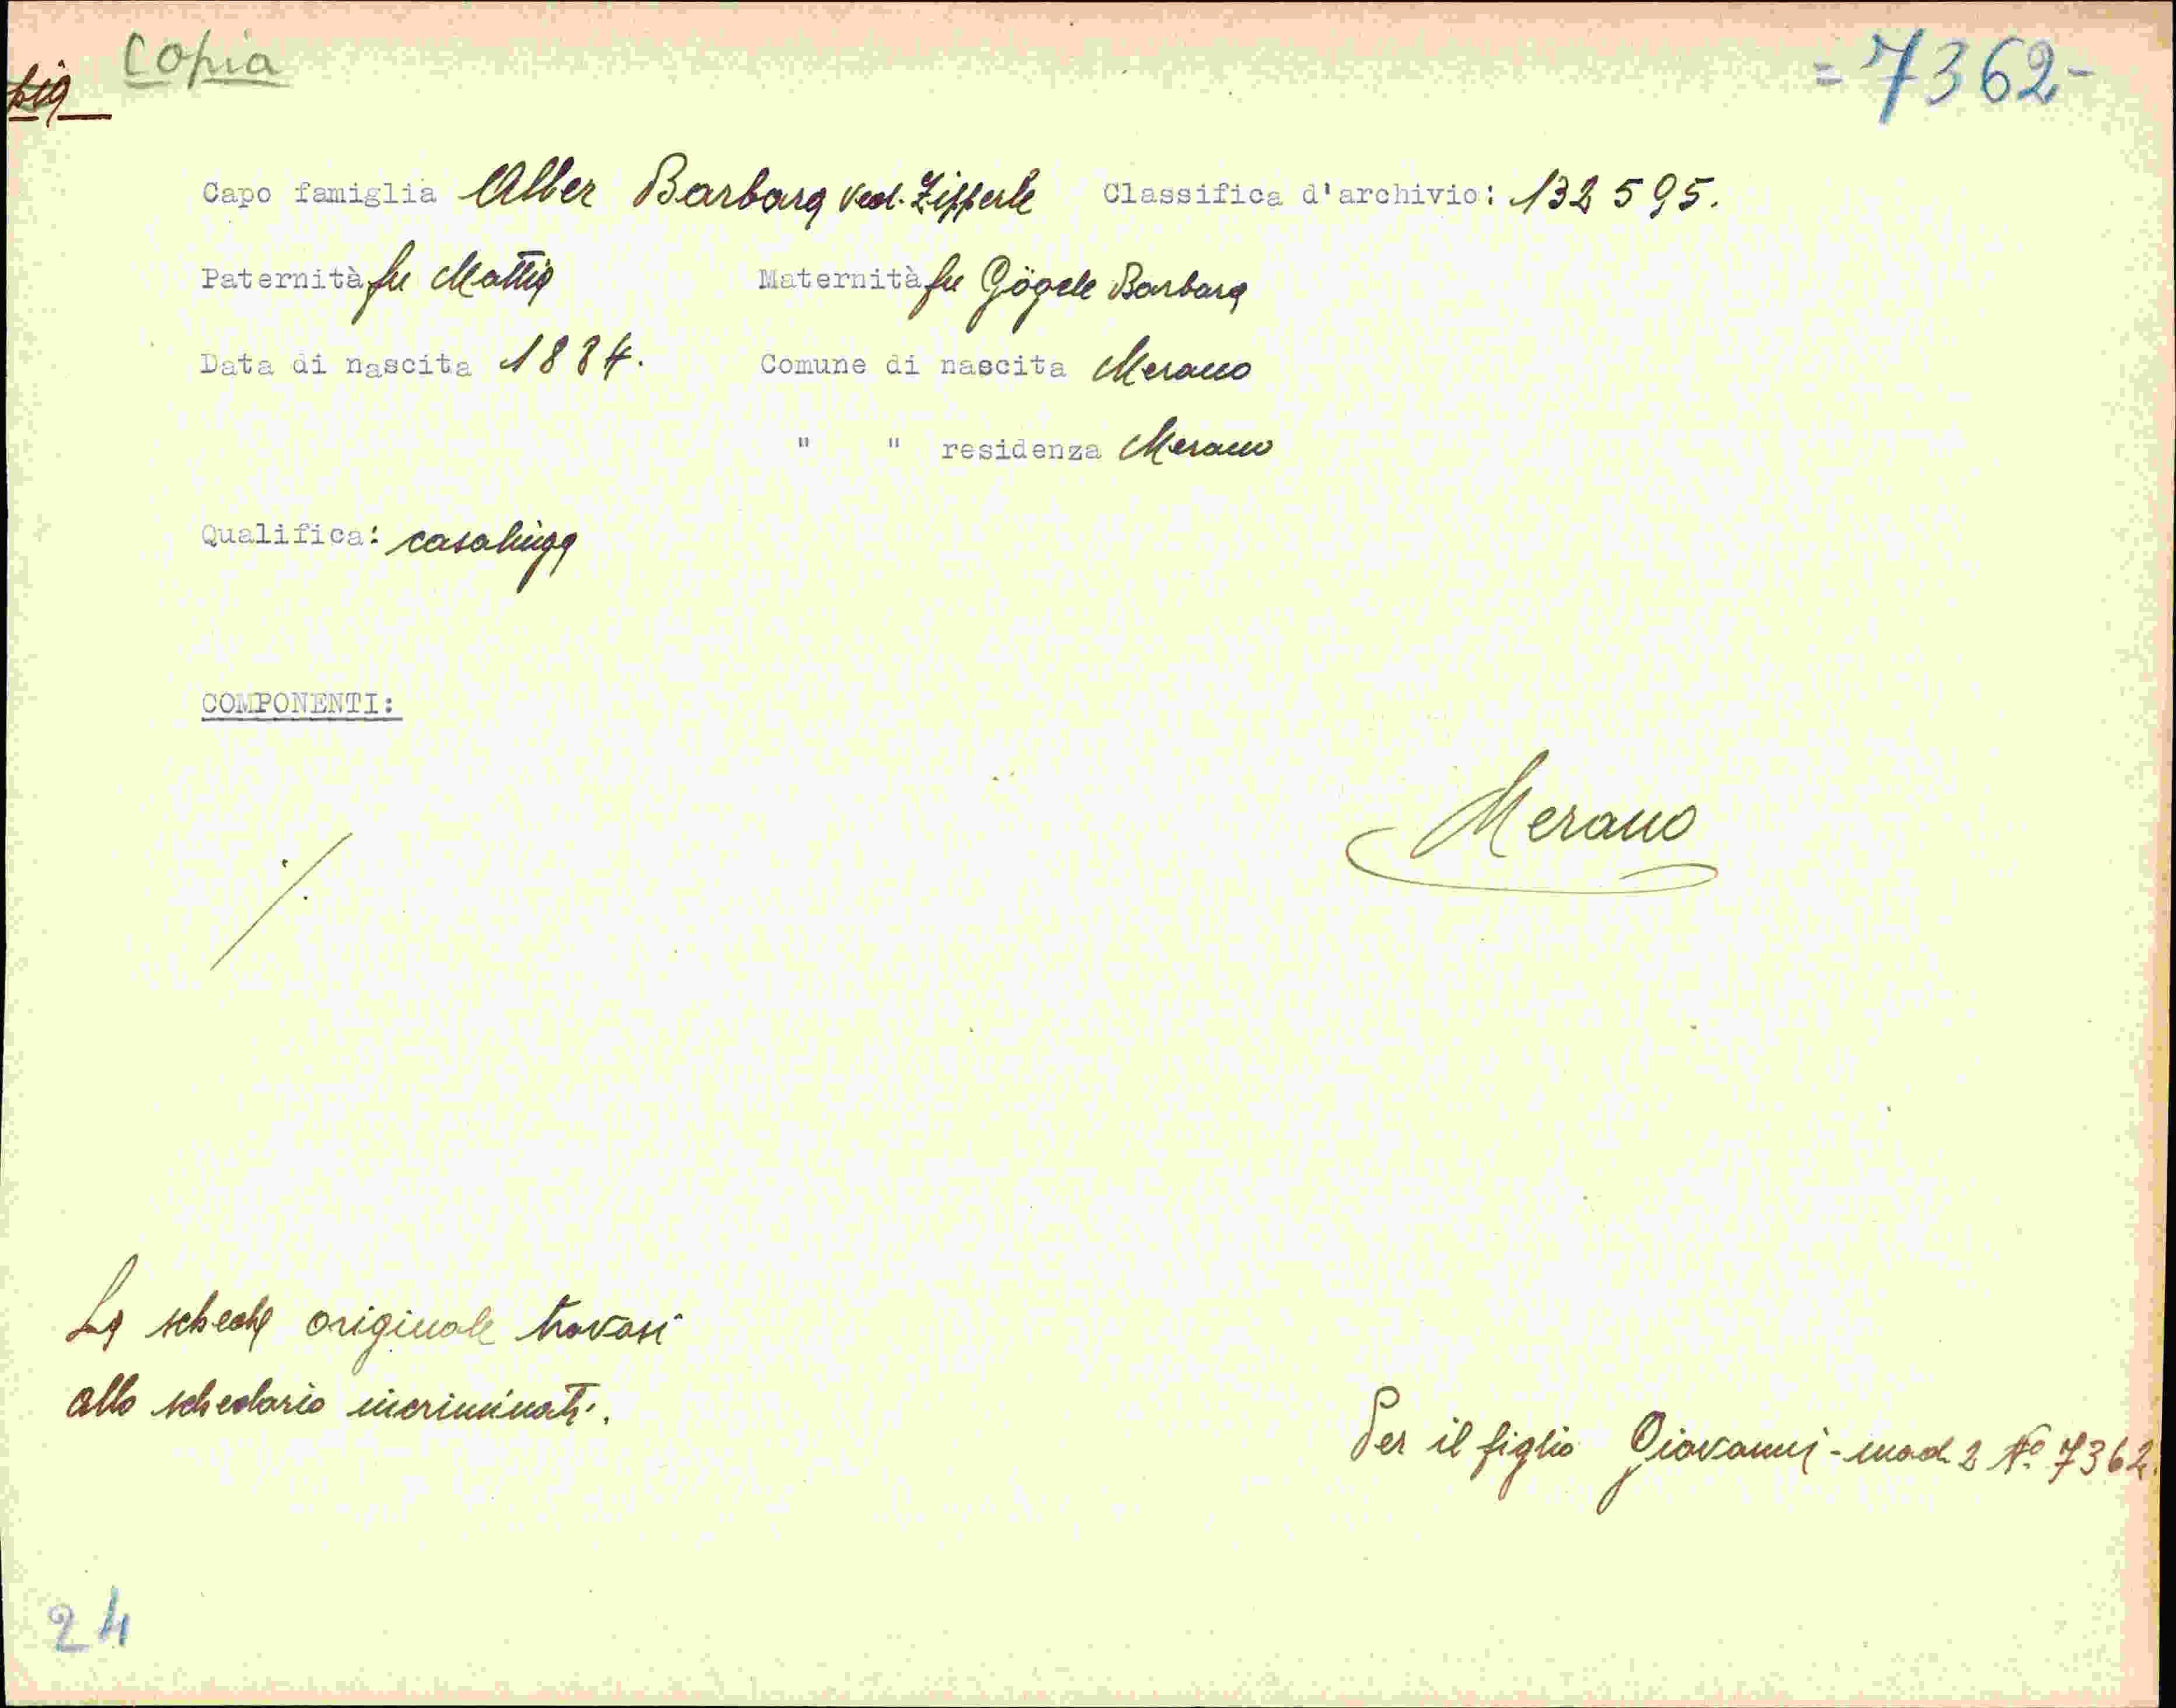 Copia
= 7362-
Capo famiglia Alber Barbara ved. Zipperle Classifica d'archivio: 132595.
Paternità fu Mattia Maternità fu Gögele Barbara
Data di nascita 1884. Comune di nascita Merano
" " residenza Merano
Qualifica: casalinga
COMPONENTI:
Merano
./.
La scheda originale trovasi
allo schedario incriminati.
Per il figlio Giovanni - mod. 2 No. 7362.
24